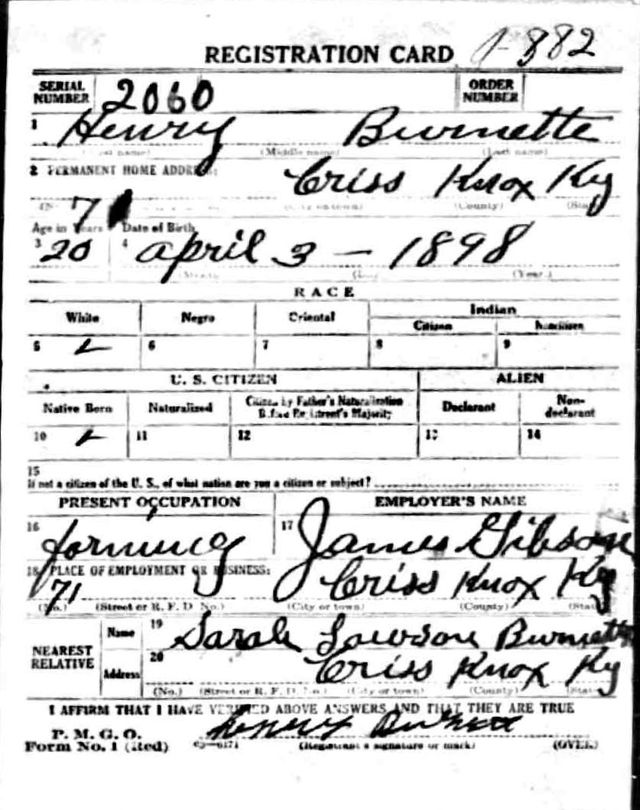 REGISTRATION CARD 1-882
SERIAL NUMBER 2060 ORDER NUMBER
1 Henry Burnette
(First name) (Middle name) (Last name)
2 PERMANENT HOME ADDRESS: Criss Knox Ky
71
(No.) (City or town) (County) (State)
Age in Years Date of Birth
3 20 4 April 3 - 1898
(Month) (Day) (Year)
RACE
White Negro Oriental Indian
Citizen Noncitizen
5 6 7 8 9
U. S. CITIZEN ALIEN
Native Born Naturalized Citizen by Father's Naturalization Before Registrant's Majority Declarant Non-declarant
10 11 12 13 14
15
If not a citizen of the U. S., of what nation are you a citizen or subject?
PRESENT OCCUPATION EMPLOYER'S NAME
16 forming 17 James Gibson
18 PLACE OF EMPLOYMENT OR BUSINESS: Criss Knox Ky
71
(No.) (Street or R. F. D. No.) (City or town) (County) (State)
NEAREST RELATIVE Name 19 Sarah Lawson Burnette
Address 20 Criss Knox Ky
(No.) (Street or R. F. D. No.) (City or town) (County) (State)
I AFFIRM THAT I HAVE VERIFIED ABOVE ANSWERS AND THAT THEY ARE TRUE
P. M. G. O. Henry Burnett
Form No. 1 (Red) 03-6171 (Registrant's signature or mark) (OVER)